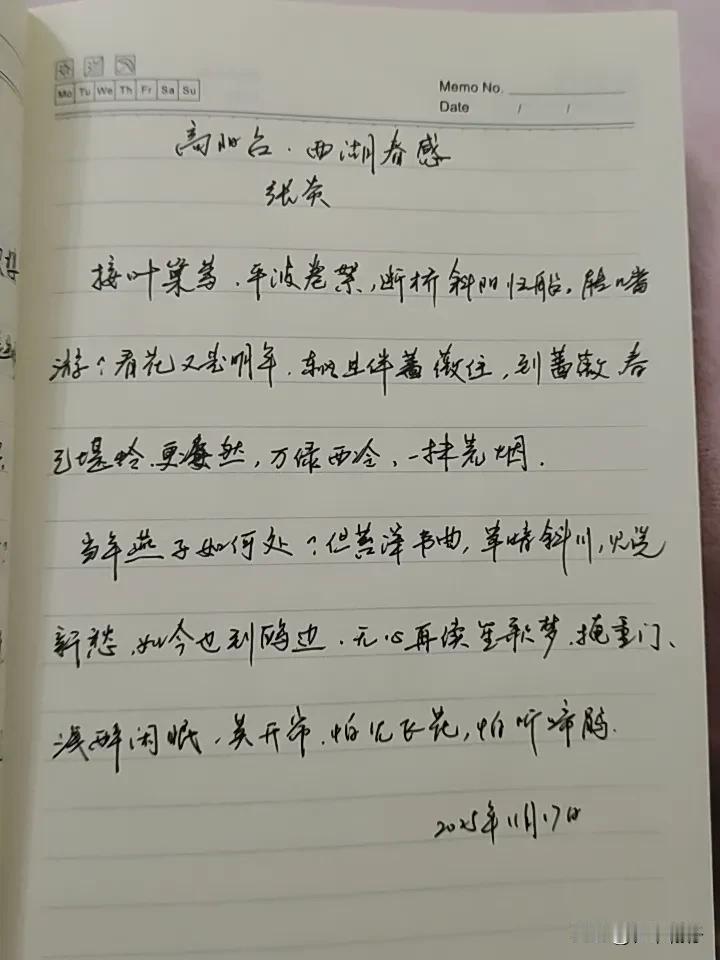 Mo Tu We Th Fr Sa Su
Memo No.
Date / /
高阳台·西湖春感
张炎
接叶巢莺,平波卷絮,断桥斜阳归船,能几
游?看花又是明年,东风且伴蔷薇住,到蔷薇,春
已堪怜,更凄然,万绿西泠,一抹荒烟.
当年燕子如何处?但苔深韦曲,草暗斜川,见说
新愁,如今也到鸥边.无心再续笙歌梦,掩重门、
浅醉闲眠,莫开帘,怕见飞花,怕听啼鹃.
2025年11月17日